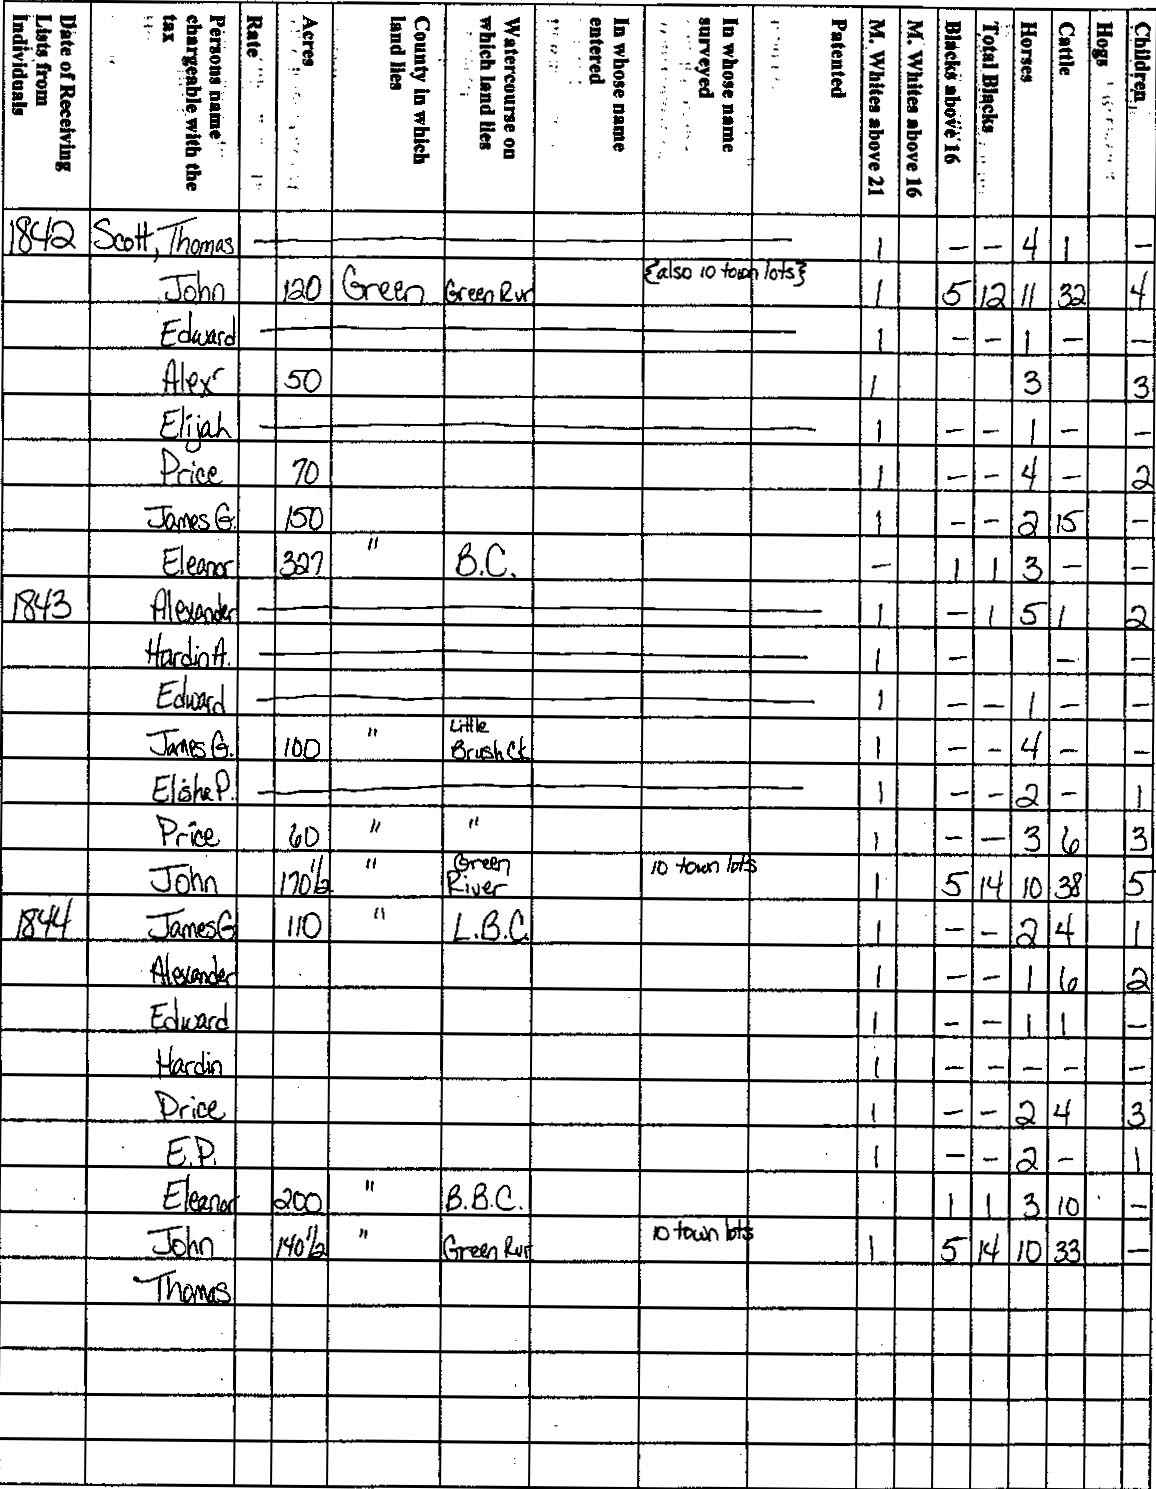 Date of Receiving Lists from individuals | Persons name chargeable with the tax | Rate | Acres | County in which land lies | Watercourse on which land lies | In whose name entered | In whose name surveyed | Patented | M. Whites above 21 | M. Whites above 16 | Blacks above 16 | Total Blacks | Horses | Cattle | Hogs | Children
1842 Scott, Thomas — 1 – – 4 1 –
John 120 Green Green Rvr {also 10 town lots} 1 5 12 11 32 4
Edward — 1 – – 1 – –
Alexr 50 1 3 3
Elijah — 1 – – 1 – –
Price 70 1 – – 4 – 2
James G. 150 1 – – 2 15 –
Eleanor 327 " B.C. – 1 1 3 – –
1843 Alexander — 1 – 1 5 1 2
Hardin A. — 1 – – –
Edward — 1 – – 1 – –
James G. 100 " Little Brush Ck 1 – – 4 – –
Elisha P. — 1 – – 2 – 1
Price 60 " " 1 – – 3 6 3
John 170 1/2 " Green River 10 town lots 1 5 14 10 38 5
1844 James G 110 " L.B.C. 1 – – 2 4 1
Alexander 1 – – 1 6 2
Edward 1 – – 1 1 –
Hardin 1 – – – – –
Price 1 – – 2 4 3
E.P. 1 – – 2 – 1
Eleanor 200 " B.B.C. 1 1 3 10 –
John 140 1/2 " Green Rvr 10 town lots 1 5 14 10 33 –
Thomas